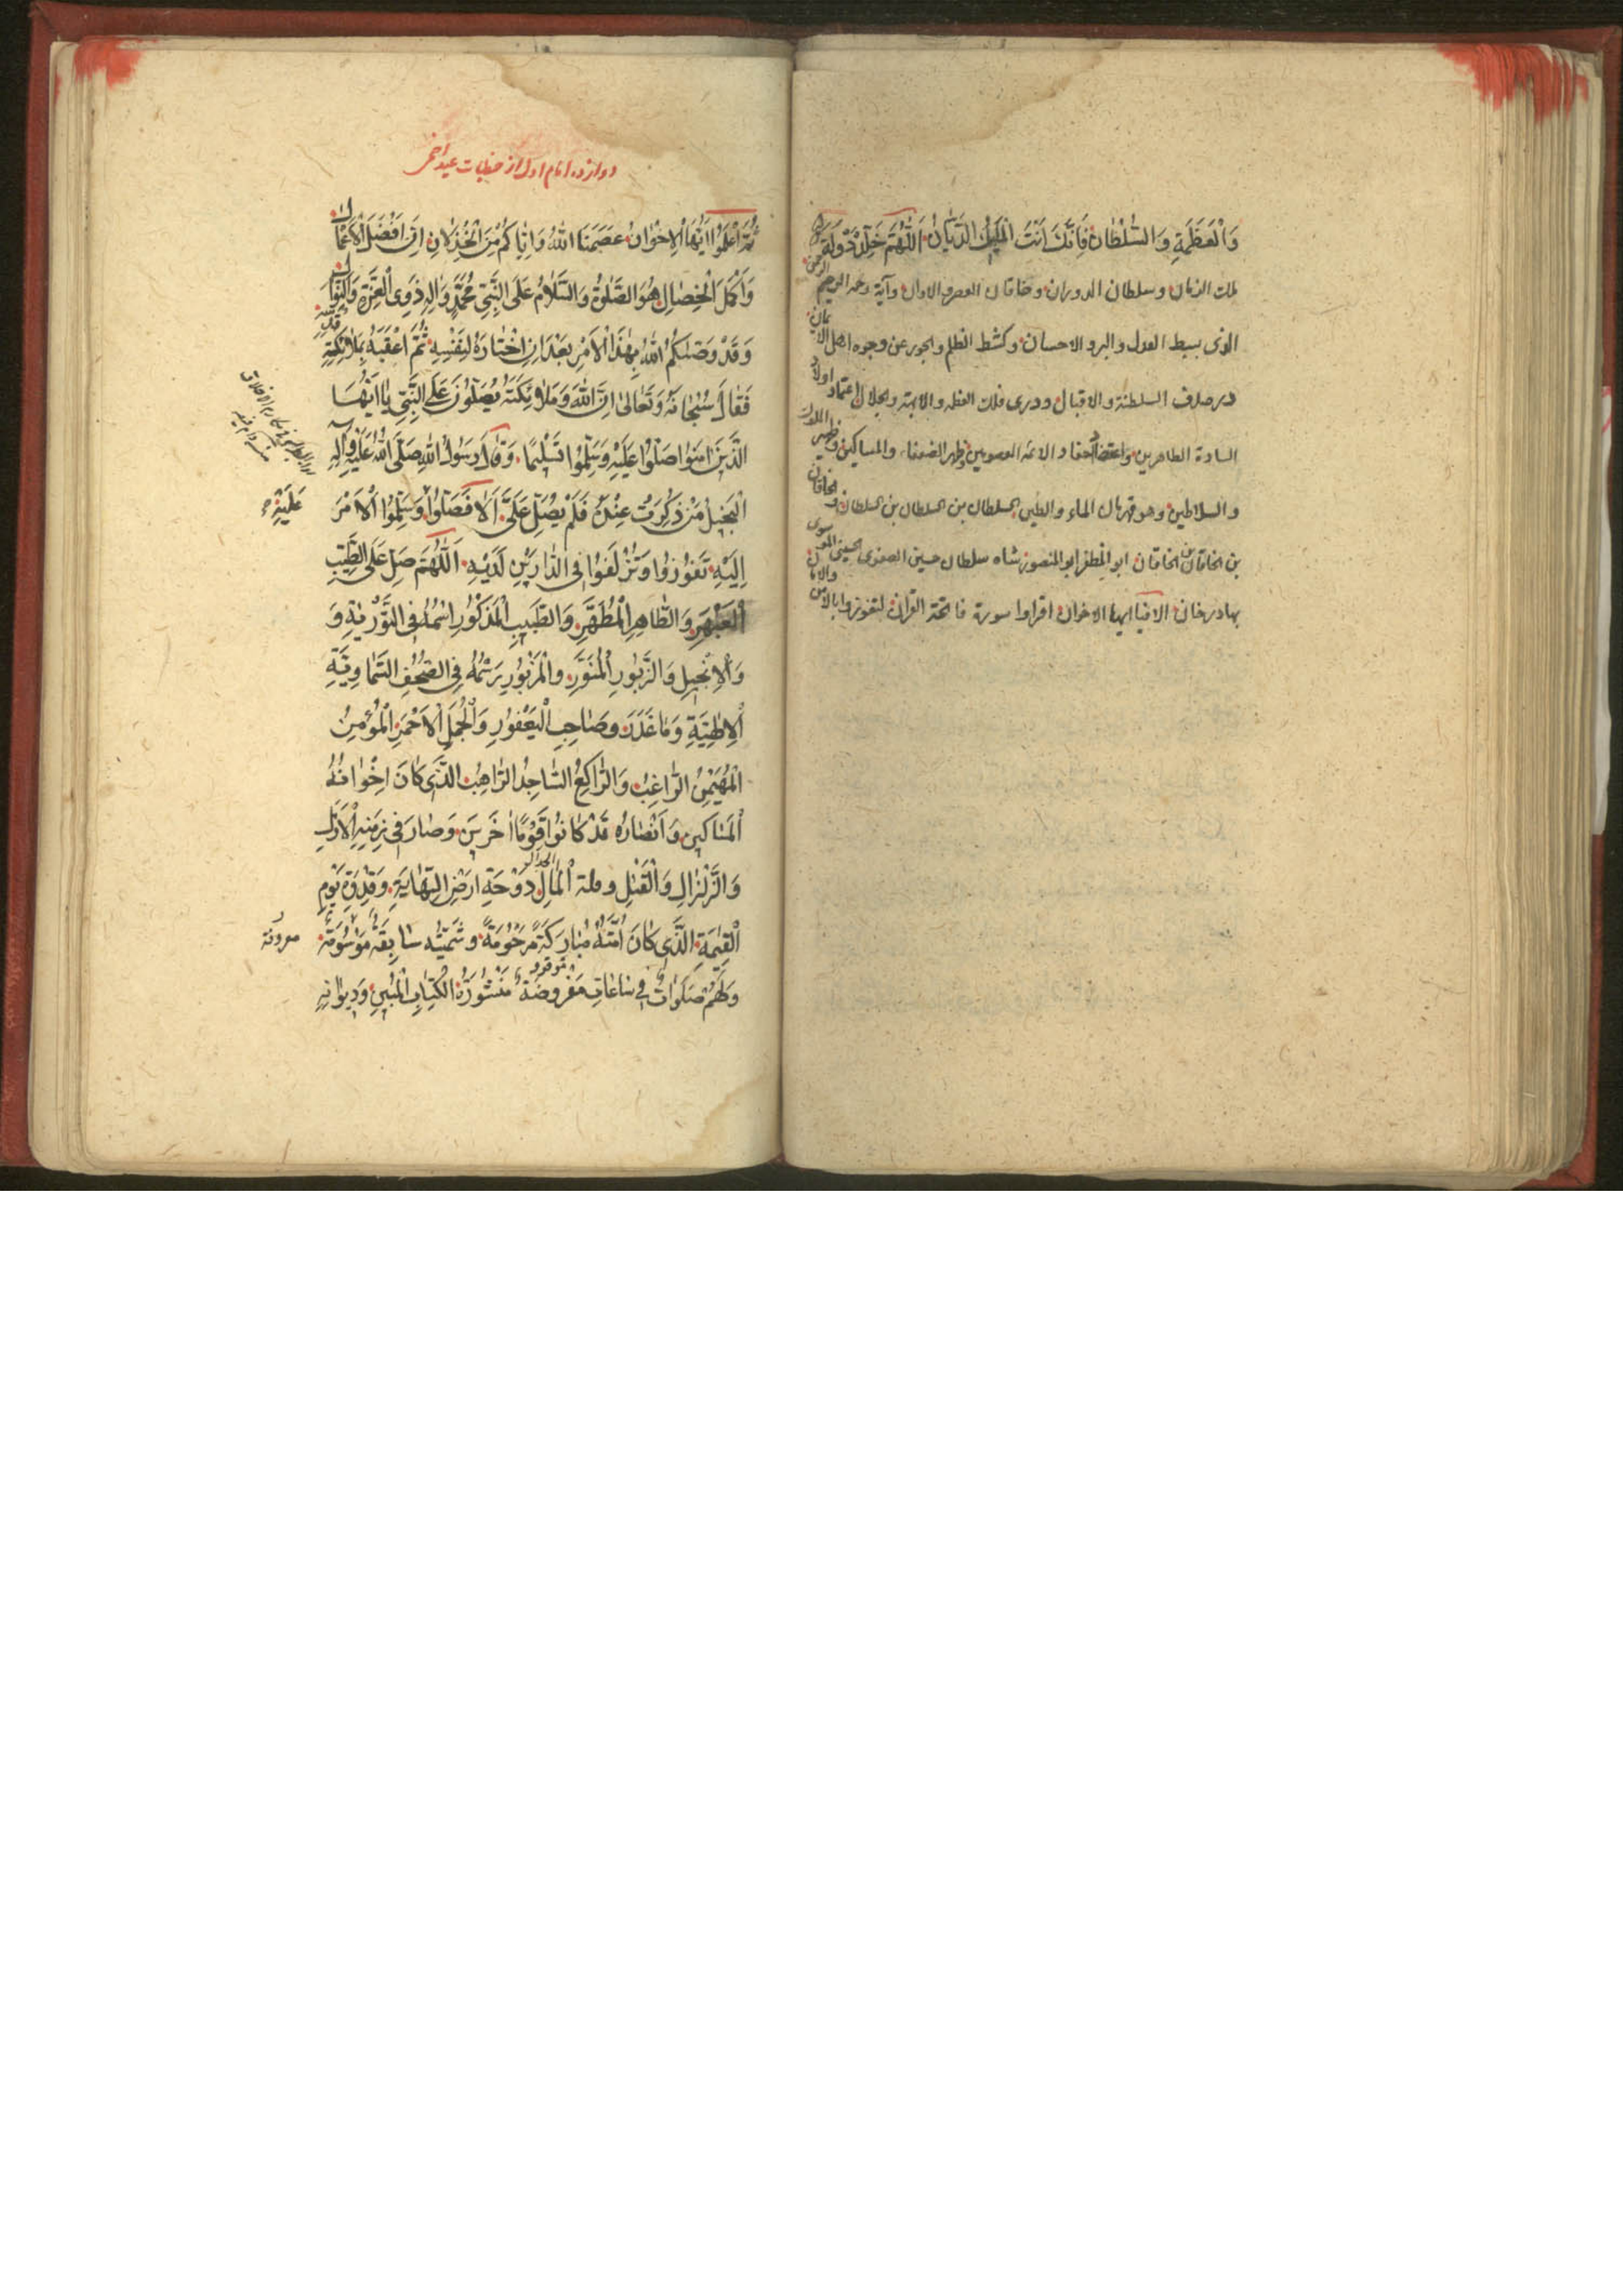 وَالْعَظَمَةِ وَالسُّلْطَانِ فَاِنَّكَ اَنْتَ الْمَلِكُ الدَّيَّانُ اَللّٰهُمَّ خَلِّدْ دَوْلَةَ
ملك الزمان وسلطان الدوران وخاقان العصر والاوان وآية رحمة الرحيم الرحمن
الذى بسط العدل والبر والاحسان وكشط الظلم والجور عن وجوه اهل الايمان
در صدف السلطنة والاقبال ودرى فلك العظمة والابهة والجلال اعتماد اولاد
السادة الطاهرين واعتضاد احفاد الائمة المعصومين وظهر الضعفاء والمساكين وظهير الملوك
والسلاطين وهو قهرمان الماء والطين السلطان بن السلطان بن السلطان والخاقان
بن الخاقان بن الخاقان ابو المظفر ابو المنصور شاه سلطان حسين الصفوى الحسينى الموسوى
بهادر خان الا فيا ايها الاخوان اقراوا سورة فاتحة القرآن لتفوزوا بالامن والامان
دوازده امام اول از خطبات عيد اضحى
ثُمَّ اعْلَمُوا اَيُّهَا الْاِخْوَانُ عَصَمَنَا اللّٰهُ وَاِيَّاكُمْ مِنَ الْخُذْلَانِ اِنَّ اَفْضَلَ الْاَعْمَالِ
وَاَكْمَلَ الْخِصَالِ هُوَ الصَّلٰوةُ وَالسَّلَامُ عَلَى النَّبِىِّ مُحَمَّدٍ وَاٰلِهِ ذَوِى الْعِزَّةِ وَالنَّوَالِ
وَقَدْ وَصّٰكُمُ اللّٰهُ بِهٰذَا الْاَمْرِ بَعْدَ اَنِ اخْتَارَهُ لِنَفْسِهِ ثُمَّ اَعْقَبَهُ بِمَلَائِكَةِ قُدْسِهِ
فَقَالَ سُبْحَانَهُ وَتَعَالٰى اِنَّ اللّٰهَ وَمَلٰٓئِكَتَهُ يُصَلُّونَ عَلَى النَّبِىِّ يَا اَيُّهَا
الَّذِينَ اٰمَنُوا صَلُّوا عَلَيْهِ وَسَلِّمُوا تَسْلِيمًا وَقَالَ رَسُولُ اللّٰهِ صَلَّى اللّٰهُ عَلَيْهِ وَاٰلِهِ
اَلْبَخِيلُ مَنْ ذُكِرْتُ عِنْدَهُ فَلَمْ يُصَلِّ عَلَىَّ اَلَا فَصَلُّوا وَسَلِّمُوا الْاَمْرَ
عَلَيْهِ
اِلَيْهِ تَفُوزُوا وَتُزْلَفُوا فِى الدَّارَيْنِ لَدَيْهِ اَللّٰهُمَّ صَلِّ عَلَى الطَّيِّبِ
الْعَبْهَرِ وَالطَّاهِرِ الْمُطَهَّرِ وَالطَّبِيبِ الْمَذْكُورِ اسْمُهُ فِى التَّوْرٰيةِ وَ
وَالْاِنْجِيلِ وَالزَّبُورِ الْمُنَوَّرِ وَالْمَزْبُورِ رَسْمُهُ فِى الصُّحُفِ السَّمَاوِيَّةِ
الْاِلٰهِيَّةِ وَمَا غَدَرَ وَصَاحِبِ الْيَعْفُورِ وَالْجُمَلِ الْاَحْمَرِ الْمُؤْمِنُ
الْمُهَيْمِنُ الرَّاغِبُ وَالرَّاكِعُ السَّاجِدُ الرَّاهِبُ الَّذِى كَانَ اِخْوَانُهُ
الْمَسَاكِينَ وَاَنْصَارُهُ قَدْ كَانُوا قَوْمًا اٰخَرِينَ وَصَارَ فِى زَمَنِهِ الْاَزْلِ
وَالزَّلْزَالِ وَالْقَتْلِ وقلة الْمَالِ دَوْحَةِ اَرْضِ التِّهَامَةِ وَقِدْوَةِ يَوْمِ
الْقِيٰمَةِ الَّذِى كَانَ اُمَّتُهُ مُبَارَكَةً مَرْحُومَةً وشَمْسُه سَابِقَةً مَوْسُومَة
معروفة
وَلَهُمْ صَلَوَاتٌ فِى سَاعَاتٍ مَفْرُوضَةٍ مَنْشُورَةُ الْكِتَابِ الْمُبِينِ وَدِيوَانِهِ